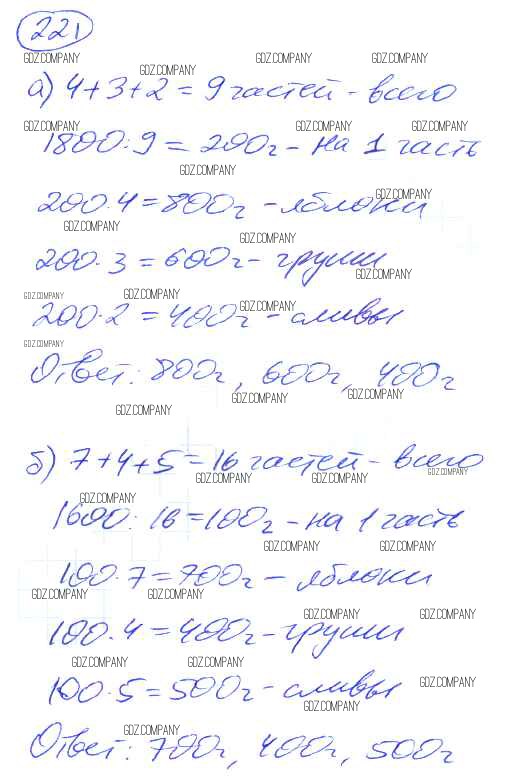 221
GDZ.COMPANY GDZ.COMPANY GDZ.COMPANY GDZ.COMPANY
а) 4+3+2 = 9 частей - всего
GDZ.COMPANY GDZ.COMPANY GDZ.COMPANY
1800:9 = 200г - на 1 часть
GDZ.COMPANY
200·4=800г - яблоки
GDZ.COMPANY
GDZ.COMPANY GDZ.COMPANY
200·3 = 600г - груши
GDZ.COMPANY
GDZ.COMPANY GDZ.COMPANY GDZ.COMPANY
200·2 = 400г - сливы
GDZ.COMPANY
Ответ: 800г, 600г, 400г
GDZ.COMPANY GDZ.COMPANY
GDZ.COMPANY
б) 7+4+5=16 частей - всего
GDZ.COMPANY GDZ.COMPANY GDZ.COMPANY
GDZ.COMPANY
1600:16=100г - на 1 часть
GDZ.COMPANY GDZ.COMPANY
100·7=700г - яблоки
GDZ.COMPANY GDZ.COMPANY
GDZ.COMPANY GDZ.COMPANY
100·4=400г - груши
GDZ.COMPANY GDZ.COMPANY
100·5=500г - сливы
GDZ.COMPANY
GDZ.COMPANY
GDZ.COMPANY
Ответ: 700г, 400г, 500г